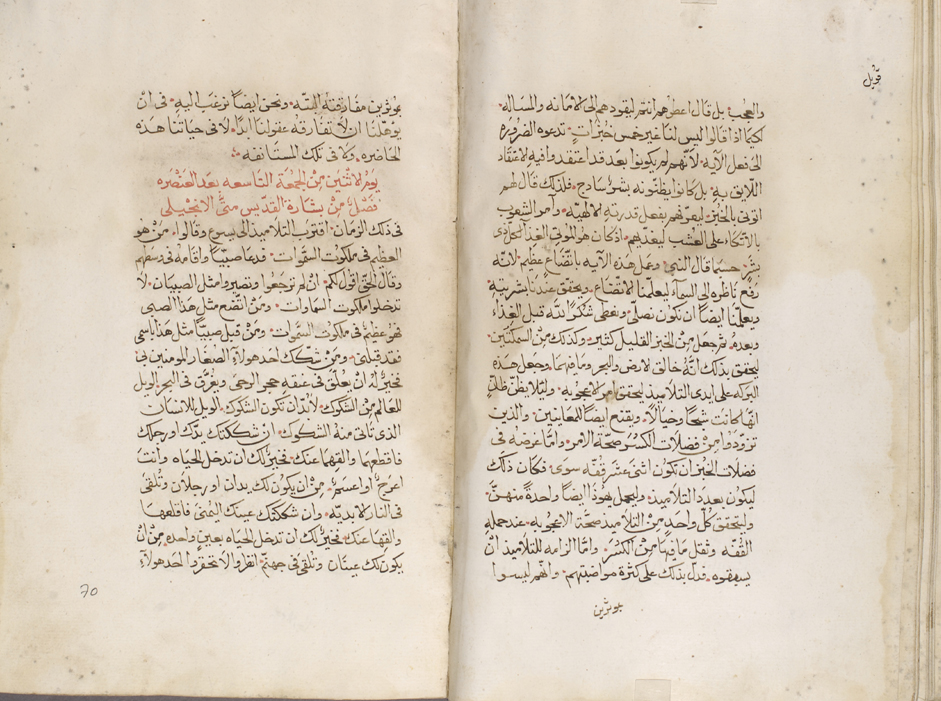 قوبل
والعجب بل قال اعطوهم انتم ليقودهم الى الامانه والمساله
لكيما اذا قالوا ليس لنا غير خمس خبزات تدعوه الضرورة
الى فعل الآيه لأنهم لم يكونوا بعد قد اعتقدوا فيه الاعتقاد
اللايق به بل كانوا يظنونه بشر ساذج فلذلك قال لهم
اتونى بالخبز ليعرفهم بفعل قدرته الالهيه وامر الشعوب
بالاتكاء على العشب ليغديهم اذ كان هو الموتى الغذا لكل ذى
بشر حسبما قال النبى وعمل هذه الآيه باتضاع عظيم لانه
رفع ناظره الى السمآء ليعلمنا الاتضاع ويحقق عندنا بشريته
ويعلمنا ايضا ان نكون نصلى ونعطى شكرا لله قبل الغذاء
وبعده ثم جعل من الخبز القليل كثير وكذلك من السمكتين
ليحقق بذلك انه خالق الارض والبحر وما فيهما وجعل هذه
البركه على ايدى التلاميذ ليحقق امر الاعجوبه ولئلا يظن ظان
انها كانت شبحا وخيالا ويقنع ايضا المعاينين والذين
تزودوا من فضلات الكسر صحة الامر واما غرضه فى
فضلات الخبز ان يكون اثنى عشر قفه سوى فكان ذلك
ليكون بعدد التلاميذ وليحمل يهوذا ايضا واحدة منهن
وليتحقق كل واحد من التلاميذ صحة الاعجوبه عند حمله
القفه وثقل ما فيها من الكسر واما الزامه للتلاميذ ان
يسبقوه فدل بذلك على كثرة مواضبتهم وانهم ليسوا
يوثرين
يوثرين مفارقته البته ونحن ايضا نرغب اليه فى ان
يوهلنا ان لا تفارقه عقولنا ابدا لا فى حياتنا هذه
الحاضره ولا فى تلك المستانفه
يوم الاثنين من الجمعة التاسعه بعد العنصره
فصل من بشارة القديس متى الانجيلى
فى ذلك الزمان اقترب التلاميذ الى يسوع وقالوا من هو
العظيم فى ملكوت السموات فدعا صبيا واقامه فى وسطهم
وقال الحق اقول لكم ان لم ترجعوا وتصيروا مثل الصبيان لا
تدخلوا ملكوت السماوات ومن اتضع مثل هذا الصبى
فهو عظيم فى ملكوت السموات ومن قبل صبيا مثل هذا باسمى
فقد قبلنى ومن شكك احد هولآء الصغار المومنين بى
فخير له ان يعلق فى عنقه حجر الرحى ويغرق فى البحر الويل
للعالم من الشكوك لأبد ان تكون الشكوك الويل للانسان
الذى تاتى منه الشكوك ان شككتك يدك او رجلك
فاقطعها والقها عنك فخير لك ان تدخل الحياه وانت
اعرج او اعسم من ان يكون لك يدان او رجلان وتلقى
فى النار الابديه وان شككتك عينك اليمنى فاقلعها
والقها عنك فخير لك ان تدخل الحياه بعين واحده من ان
يكون لك عينان وتلقى فى جهنم انظروا لا تحقروا احد هولآء
70